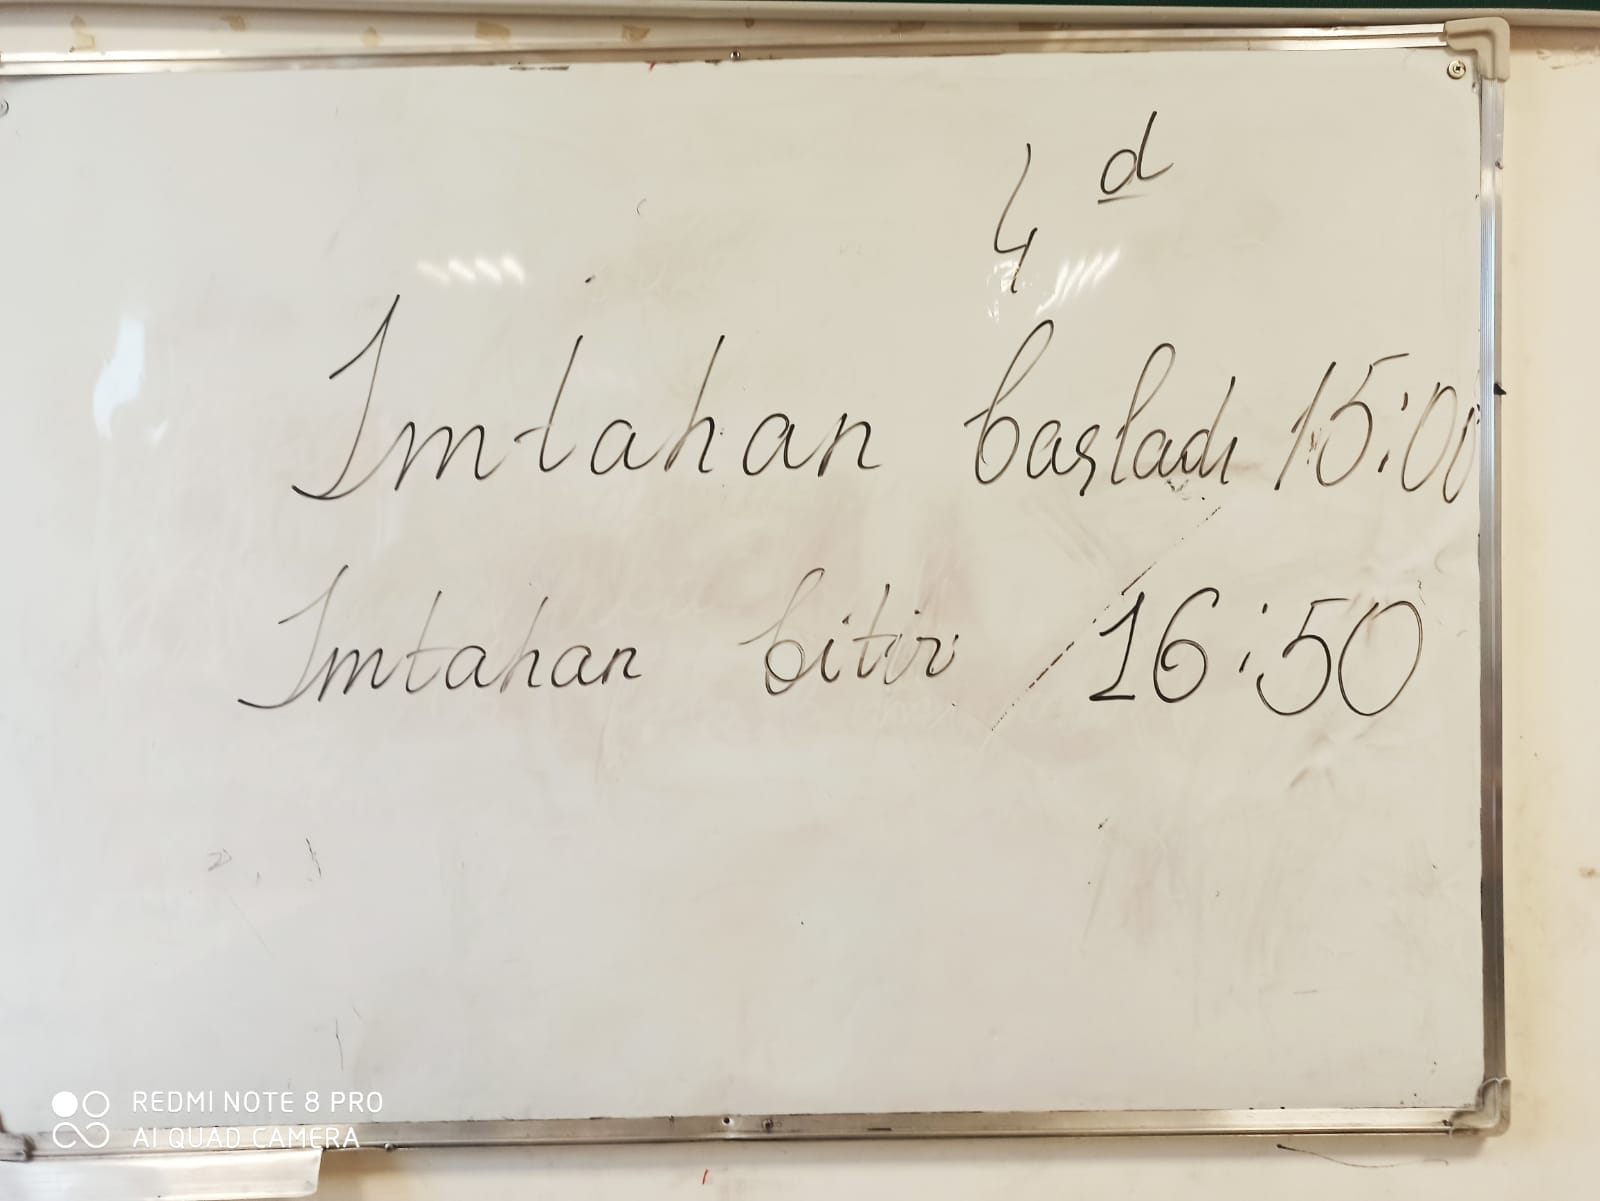 4 d
İmtahan başladı 15:00
İmtahan bitir 16:50
REDMI NOTE 8 PRO
AI QUAD CAMERA